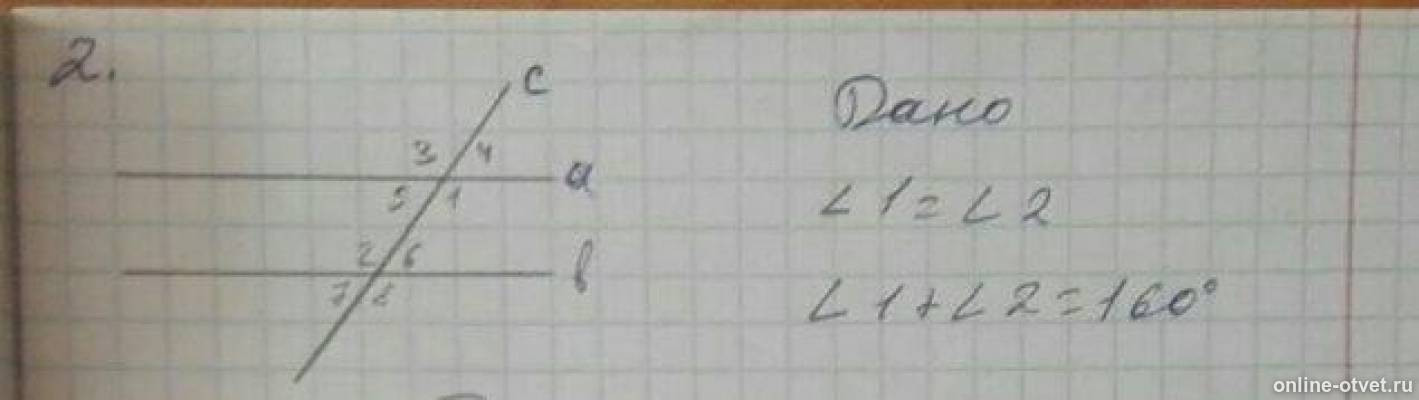 2.
c
3 4
a
5 1
2 6
b
7 8
Дано
∠1=∠2
∠1+∠2=160°
online-otvet.ru